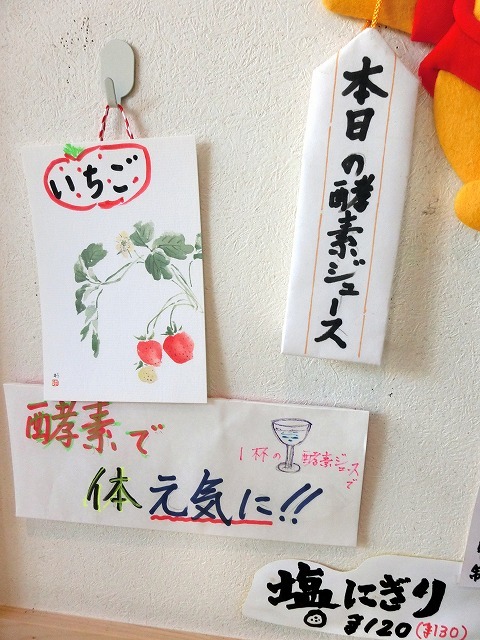 本日の酵素ジュース
いちご
酵素で
1杯の酵素ジュースで
体元気に!!
塩にぎり
¥120(¥130)